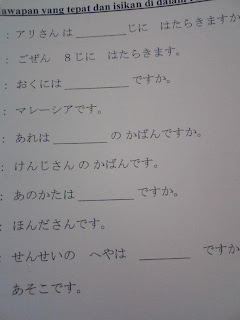 Jawapan yang tepat dan isikan di dalam
: アリさん は ________じに はたらきますか
: ごぜん 8じに はたらきます。
: おくには ________ですか。
: マレーシアです。
: あれは ________ の かばんですか。
: けんじさん の かばんです。
: あのかたは ________ですか。
: ほんださんです。
: せんせいの へやは ________ ですか
あそこです。